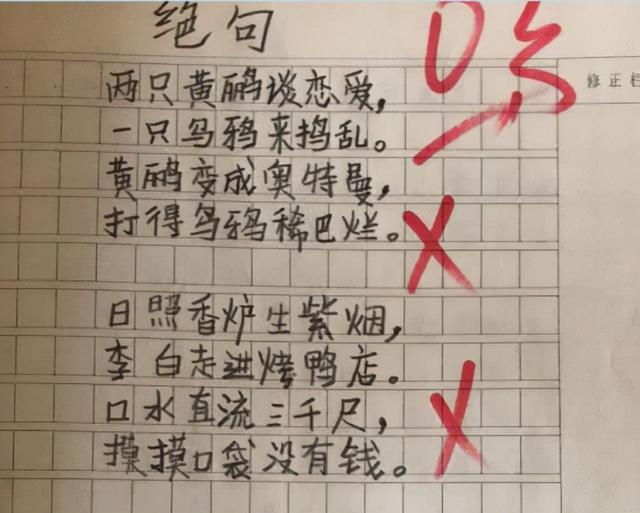 绝句
两只黄鹂谈恋爱，
一只乌鸦来捣乱。
黄鹂变成奥特曼，
打得乌鸦稀巴烂。
日照香炉生紫烟，
李白走进烤鸭店。
口水直流三千尺，
摸摸口袋没有钱。
0分
修正栏